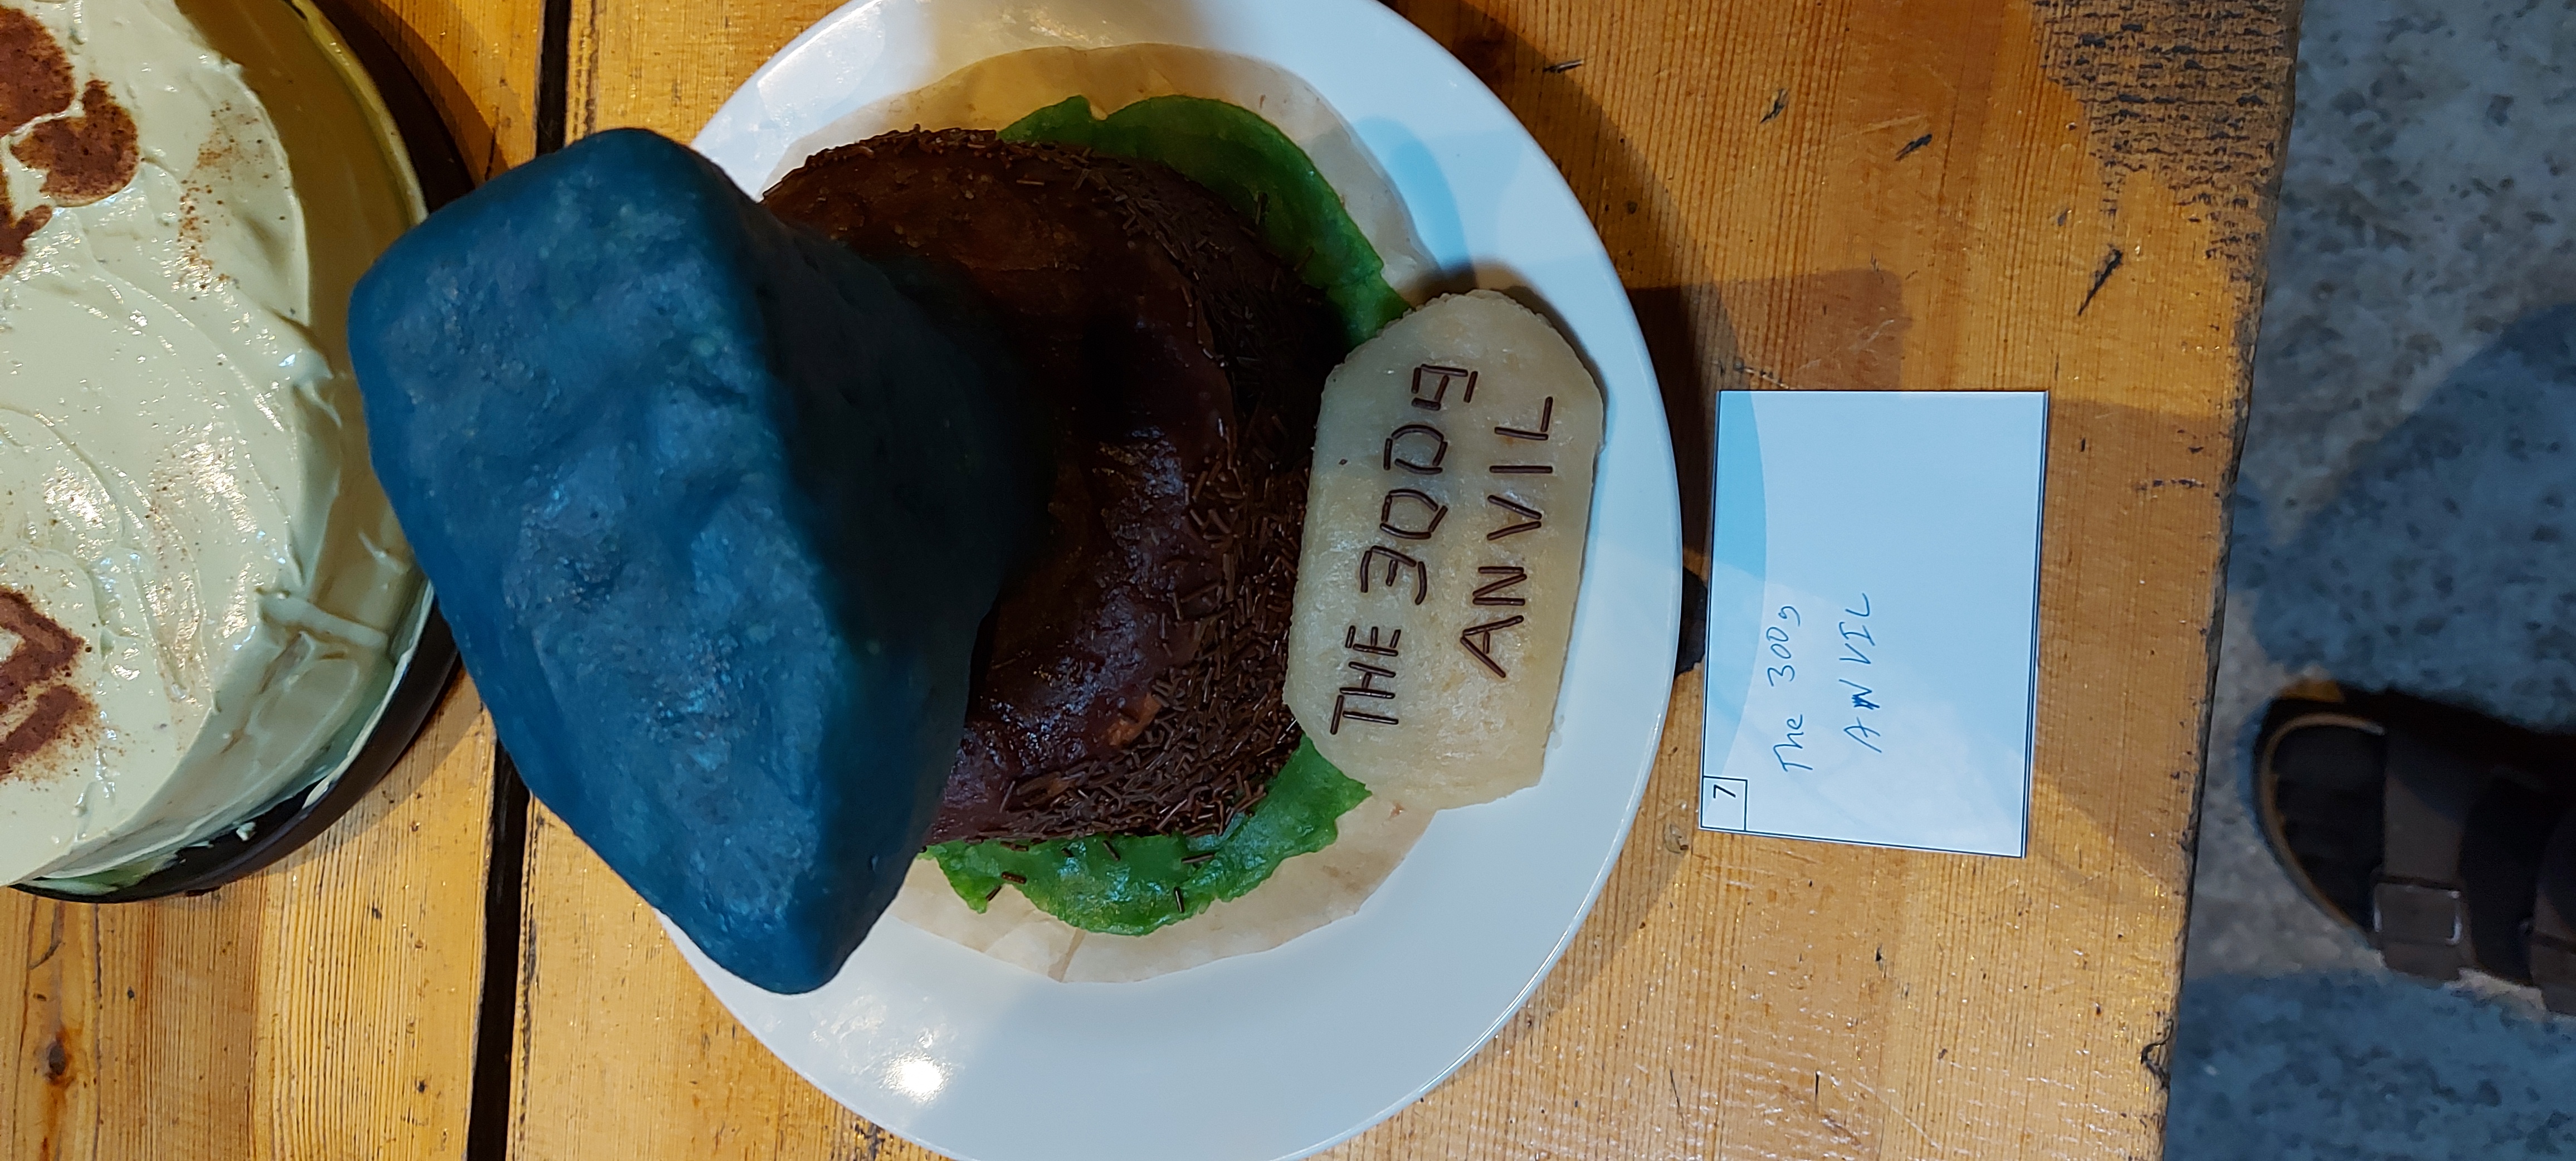 THE 300g
ANVIL
7
The 300g
ANVIL